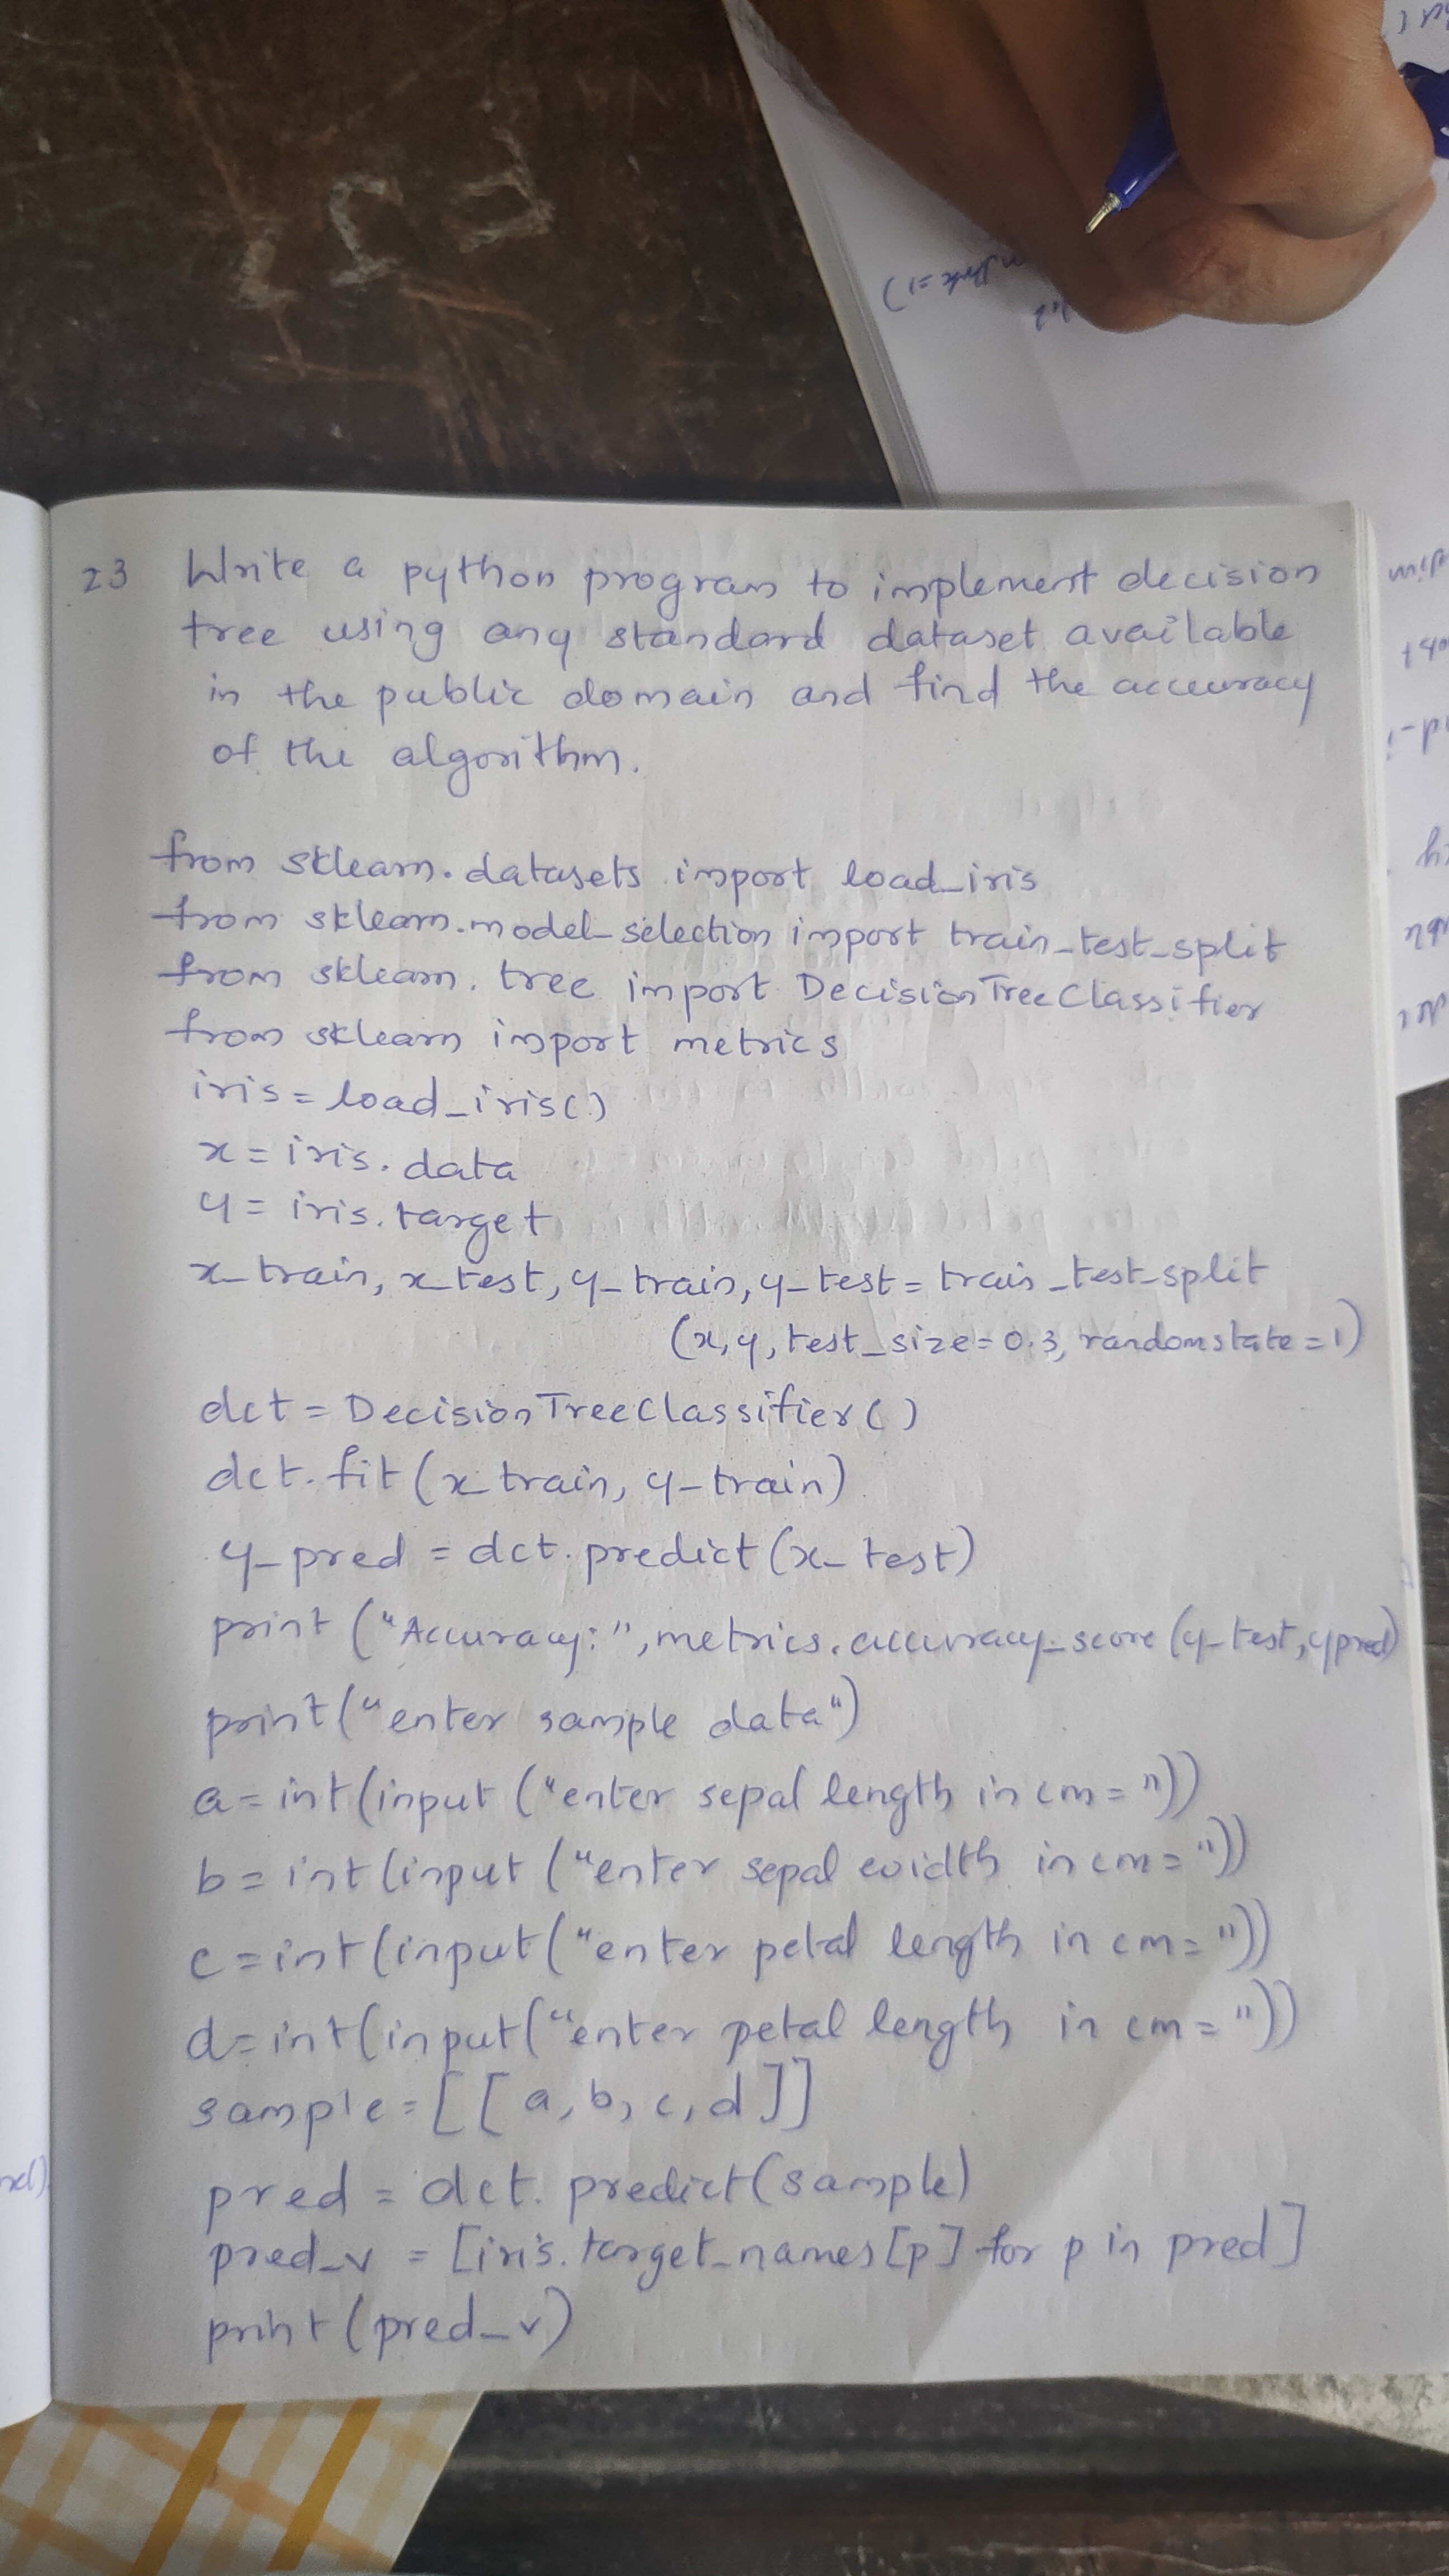 23 Write a python program to implement decision
tree using any standard dataset available
in the public domain and find the accuracy
of the algorithm.
from sklearn.datasets import load_iris
from sklearn.model_selection import train_test_split
from sklearn.tree import DecisionTreeClassifier
from sklearn import metrics
iris = load_iris()
x = iris.data
y = iris.target
x_train, x_test, y_train, y_test = train_test_split
(x, y, test_size = 0.3, randomstate = 1)
dct = DecisionTreeClassifier()
dct.fit(x_train, y_train)
y_pred = dct.predict(x_test)
print ("Accuracy:", metrics.accuracy_score (y_test, ypred)
print("enter sample data")
a = int(input ("enter sepal length in cm = "))
b = int(input ("enter sepal width in cm = "))
c = int(input("enter petal length in cm = "))
d = int(input("enter petal length in cm = "))
sample = [[a, b, c, d]]
pred = dct.predict(sample)
pred_v = [iris.target_names[p] for p in pred]
print(pred_v)